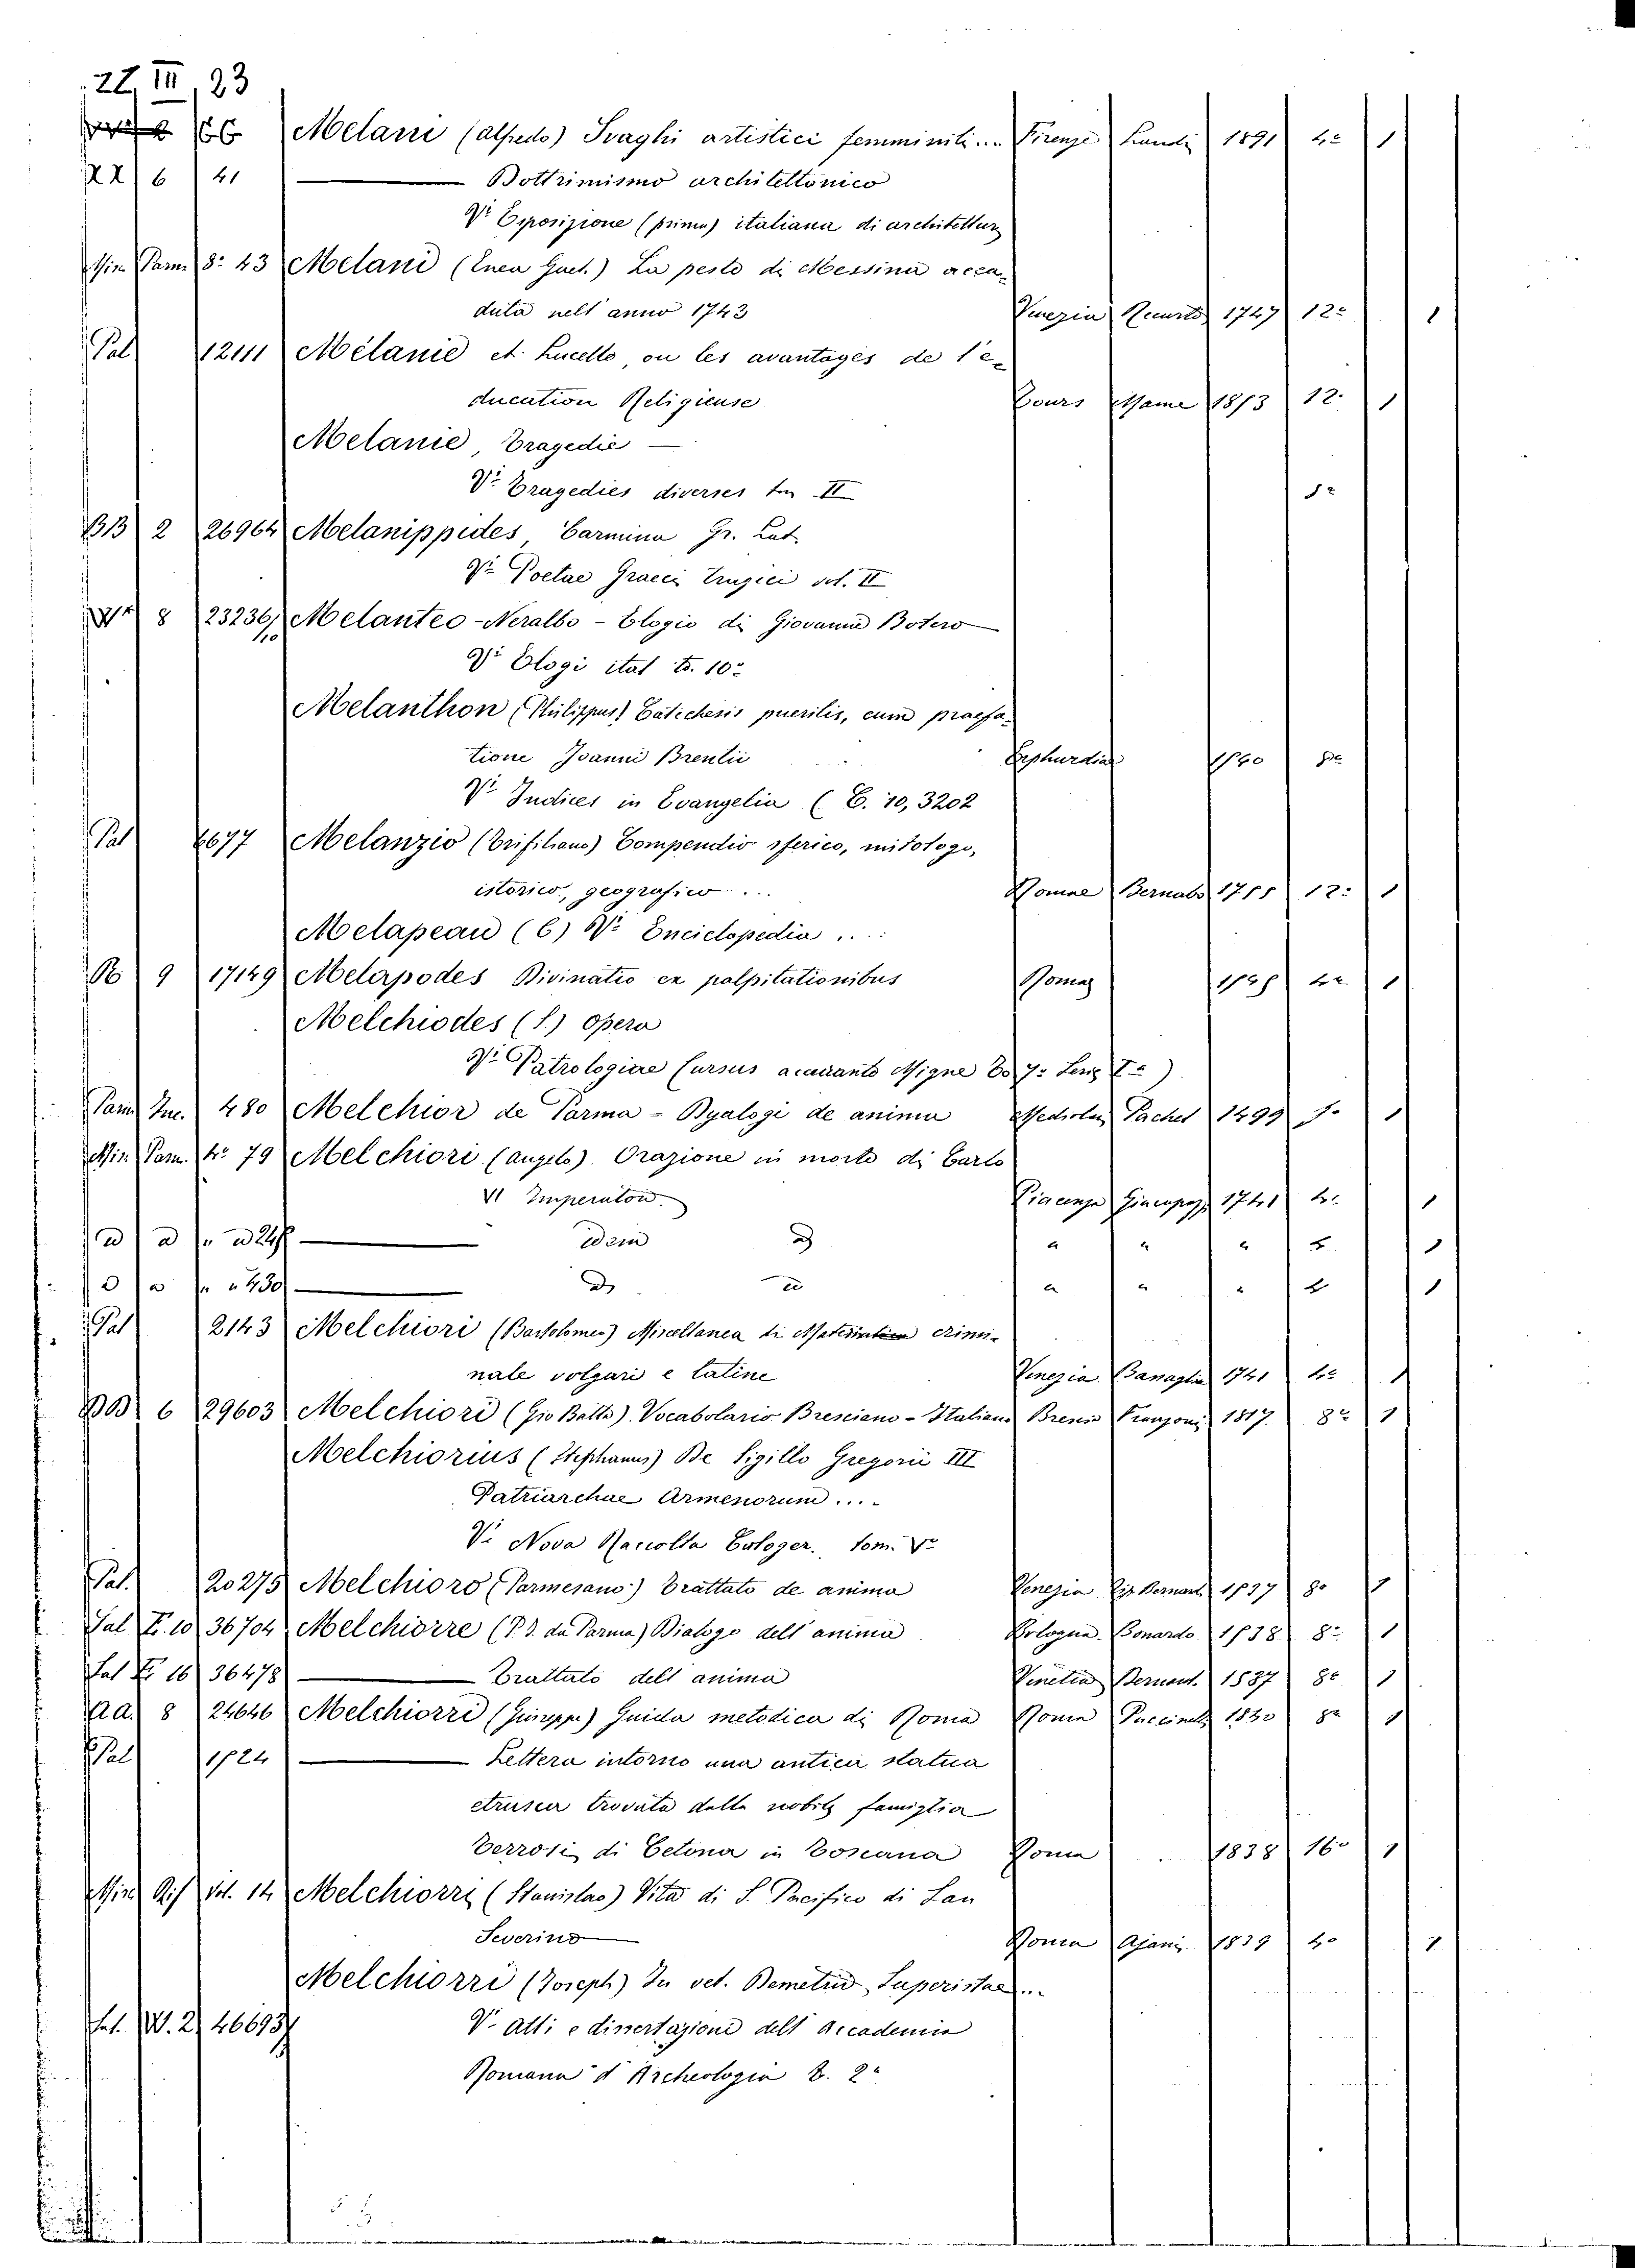 22, III, 23
66 Melani (Alfredo) Svaghi artistici femminili... Firenze Landi 1891 4° 1
XX 6 41 Dottrinismo architettonico
V. Esposizione (prima) italiana di architettur
Min Parm 8° 43 Melani (Enea Gaet.) La peste di Messina acca-
duta nell'anno 1743 Venezia 1747 12° 1
Pal 12111 Mélanie et Lucette, ou les avantages de l'e-
ducation Religieuse Tours Mame 1873 12° 1
Melanie, Tragedie
V. Tragedies diverses tm II 8°
BB 2 26964 Melanippides, Carmina Gr. Lat.
V. Poetae Graeci Tragici vol. II
8 23236/10 Melanteo-Neralbo - Elogio di Giovanni Botero
V. Elogi ital t. 10°
Melanthon (Philippus) Catechesis puerilis, cum praefa-
tione Joanni Brentii 8°
V. Indices in Evangelia ( C. 10, 3202
Pal 6677 Melanzio (Trifiliano) Compendio sferico, mitologo,
istorico, geografico... Romae Bernabò 1755 12° 1
Melapeau (C) V. Enciclopedia ....
9 17149 Melapodes Divinatio ex palpitationibus Romae 4° 1
Melchiodes (S.) Opera
V. Patrologiae Cursus accurante Migne
Parm Inc. 480 Melchior de Parma - Dyalogi de anima Mediolan Pachel 1499 1
Min. Parm. 4° 79 Melchiori (Angelo) Orazione in morte di Carlo
VI Imperatore Piacenza 1741 4° 1
idem 1
430 1
Pal 2143 Melchiori (Bartolomeo) Miscellanea di Materie crimi-
nale volgari e latine Venezia 1741 4° 1
BB 6 29603 Melchiori (Gio Batta) Vocabolario Bresciano-Italiano Brescia Franzoni 1817 8° 1
Melchiorius (Stephanus) De Sigillo Gregorii III
Patriarchae Armenorum....
V. Nova Raccolta Caloger. tom. V°
Pal. 20275 Melchioro (Parmesano) Trattato de anima Venezia 1537 8° 1
Pal F. 10 36704 Melchiorre (P. I. da Parma) Dialogo dell'anima Bologna Bonardo 1538 8° 1
Pal 16 36478 Trattato dell anima Venetia Bernard. 1537 8° 1
AA. 8 24646 Melchiorri (Giuseppe) Guida metodica di Roma Roma Puccinelli 8° 1
Pal 1524 Lettera intorno una antica statua
etrusca trovata dalla nobile famiglia
Terrosi di Cetona in Toscana Roma 1838 16° 1
Min Rif vol. 14 Melchiorri (Stanislao) Vita di S. Pacifico di San
Severino Roma Ajani 1839 4° 1
Melchiorri (Joseph) In vet. Demetrio Superistae...
Pal. W. 2 46693 V. Atti e dissertazioni dell Accademia
Romana d'Archeologia t. 2°